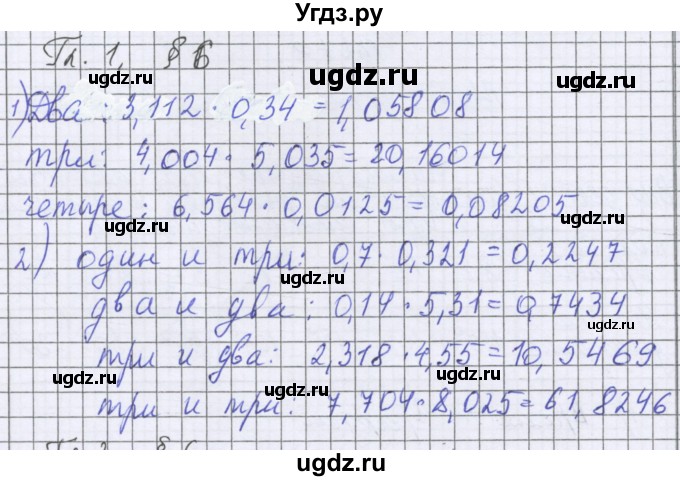 Угдз.ру
Гл. 1, § 6
1) Два : 3,112 · 0,34 = 1,05808
три: 4,004 · 5,035 = 20,16014
четыре: 6,564 · 0,0125 = 0,08205
2) один и три: 0,7 · 0,321 = 0,2247
два и два: 0,14 · 5,31 = 0,7434
три и два: 2,318 · 4,55 = 10,5469
три и три: 7,704 · 8,025 = 61,8246
ugdz.ru
ugdz.ru
ugdz.ru
ugdz.ru
ugdz.ru
ugdz.ru
ugdz.ru
ugdz.ru
ugdz.ru
ugdz.ru
ugdz.ru
ugdz.ru